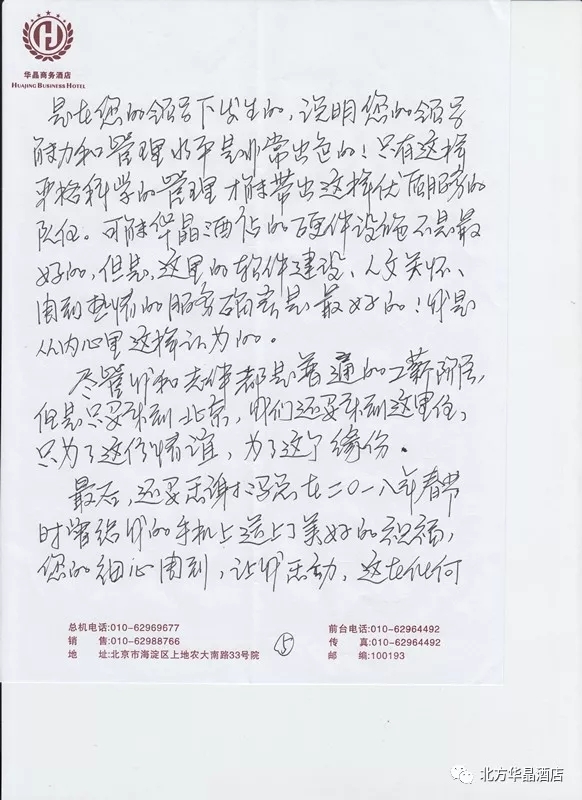 华晶商务酒店
HUAJING BUSINESS HOTEL
是在您的领导下发生的，说明您的领导
能力和管理水平是非常出色的！只有这样
严格科学的管理才能带出这样优质服务的
队伍。可能华晶酒店的硬件设施不是最
好的，但是，这里的软件建设、人文关怀、
周到热情的服务确实是最好的！我是
从内心里这样认为的。
尽管我和老伴都是普通的工薪阶层，
但是只要来到北京，我们还要来到这里住，
只为了这份情谊，为了这个缘份。
最后，还要感谢冯总在二〇一八年春节
时曾给我的手机上送上了美好的祝福，
您的细心周到，让我感动，这在任何
总机电话:010-62969677
销 售:010-62988766
地 址:北京市海淀区上地农大南路33号院
⑤
前台电话:010-62964492
传 真:010-62964492
邮 编:100193
北方华晶酒店